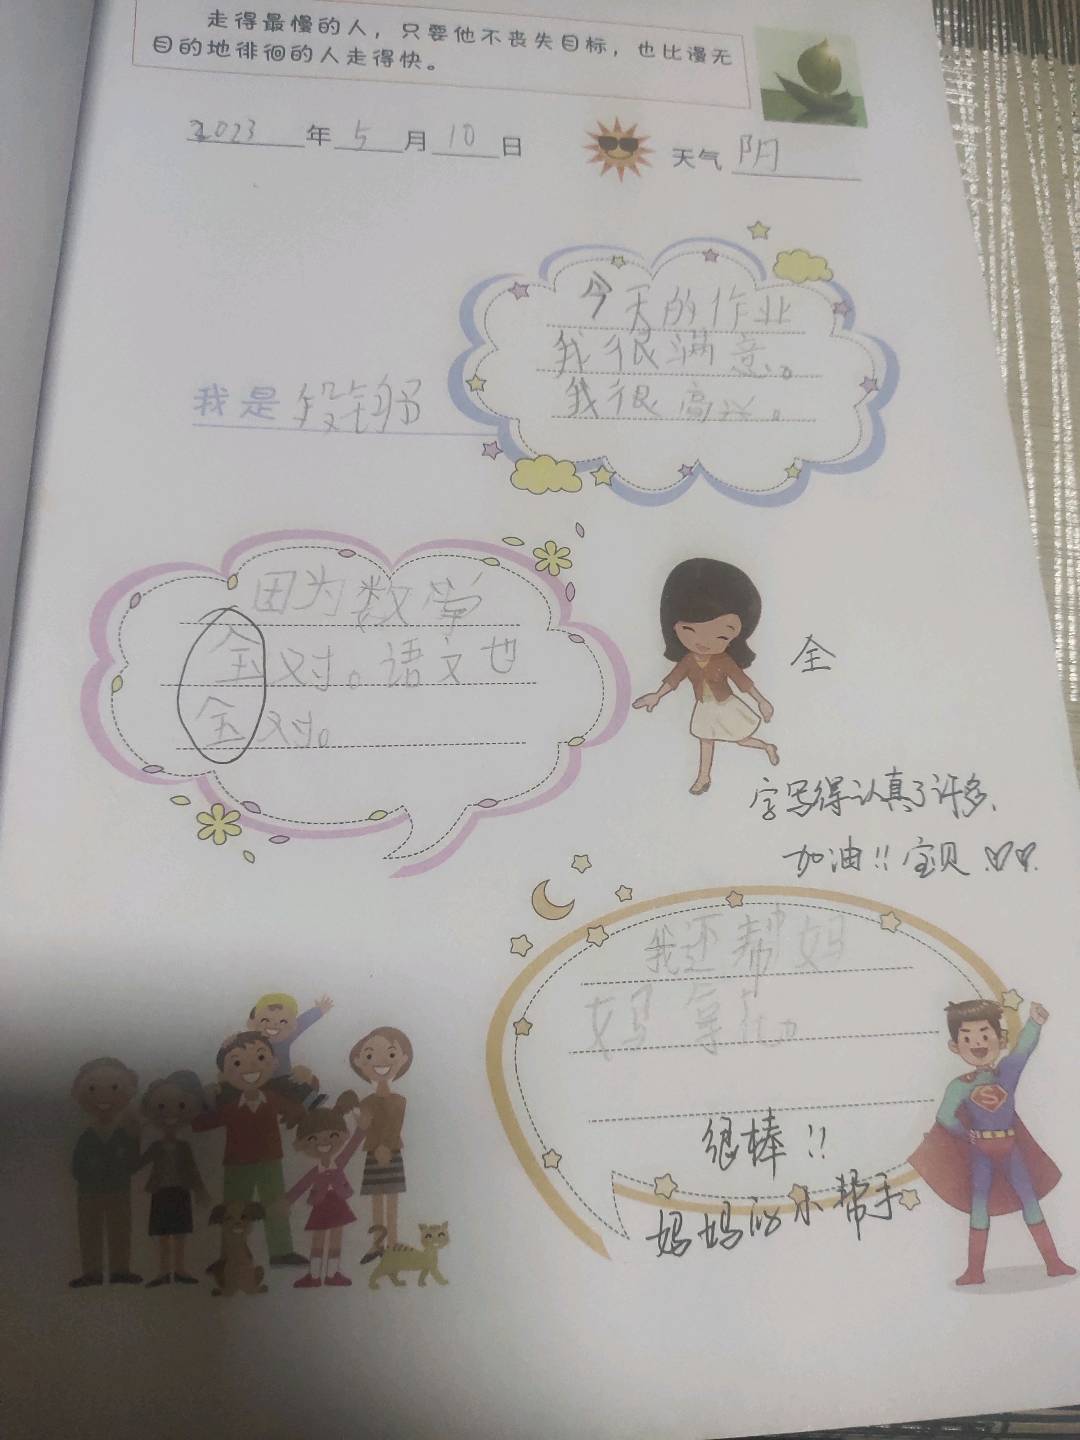 走得最慢的人，只要他不丧失目标，也比漫无
目的地徘徊的人走得快。
2023年5月10日
天气 阴
今天的作业
我很满意。
我很高兴。
我是
因为数学
全对。语文也
全对。
全
字写得认真了许多、
加油!!宝贝
我还帮妈
妈拿
很棒!!
妈妈的小帮手
S